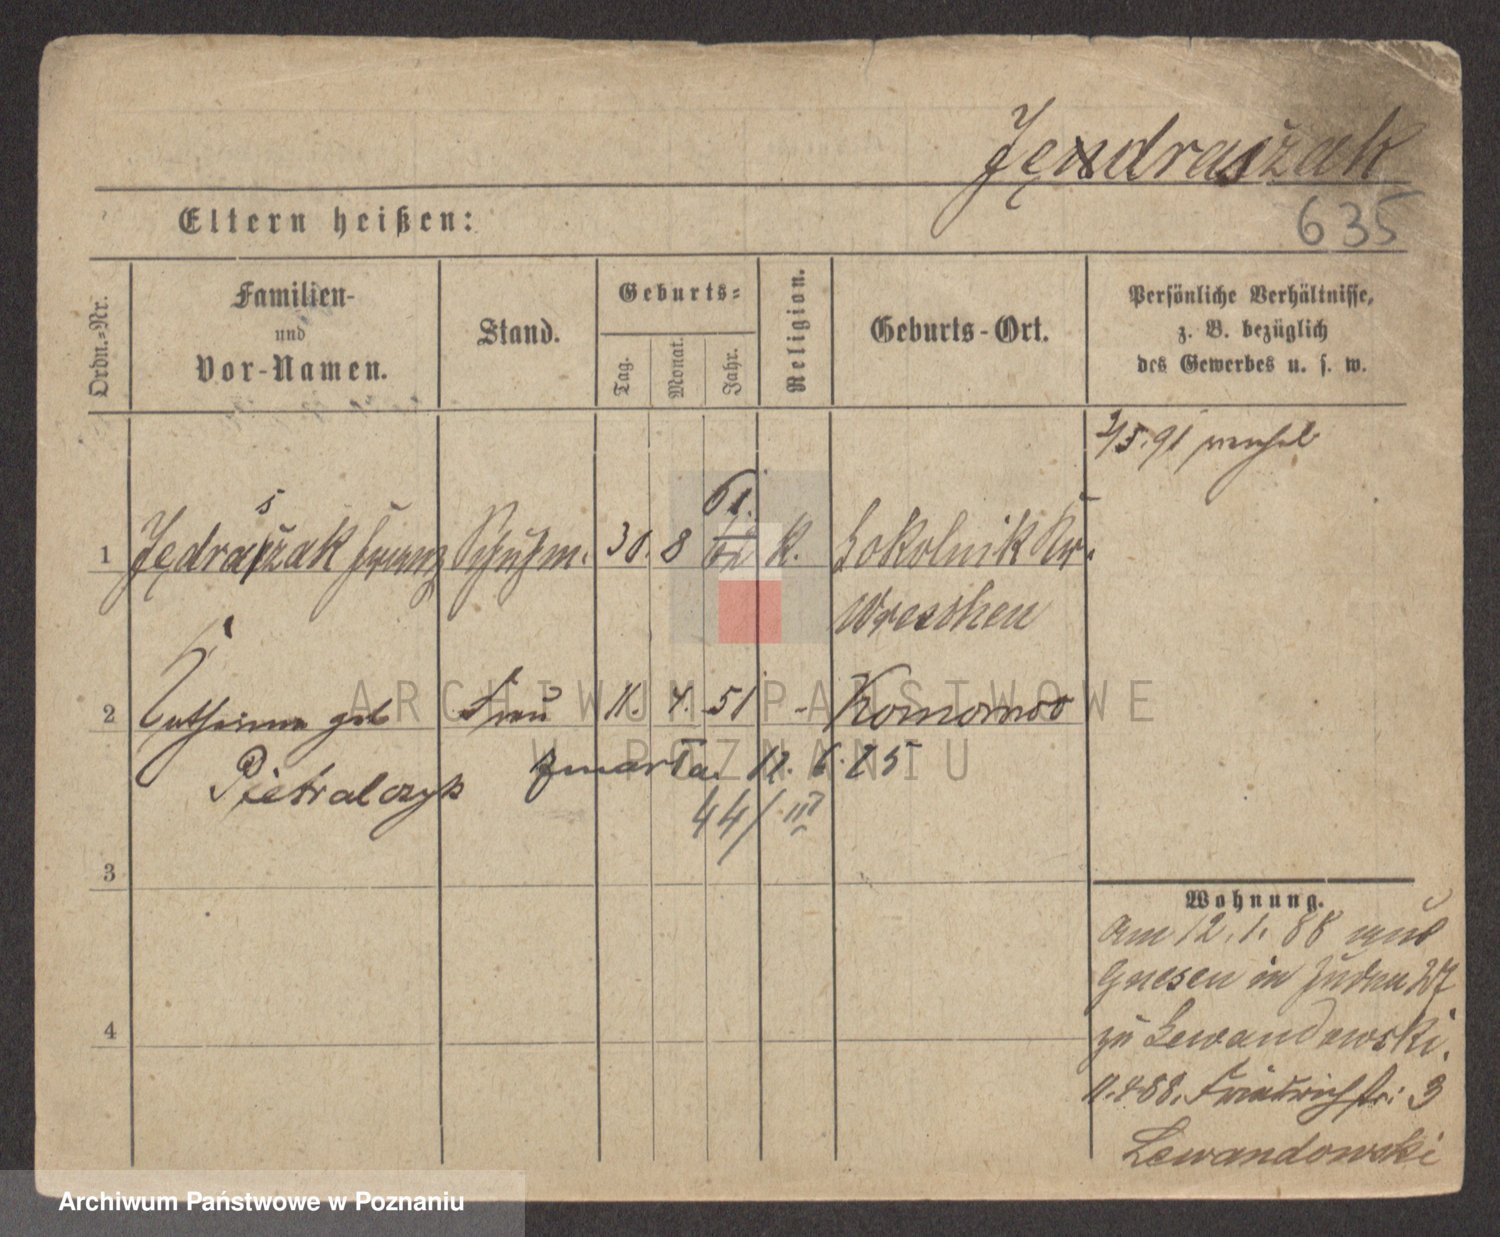 Jendraszak
635
Eltern heißen:
Ordn.-Nr.
Familien-
und
Vor-Namen.
Stand.
Geburts-
Tag.
Monat.
Jahr.
Religion.
Geburts-Ort.
Persönliche Verhältnisse,
z. B. bezüglich
des Gewerbes u. s. w.
2/5. 91
1 Jędraszak Franz Schuhm. 30. 8 61. K. Sokolnik Kr.
Wreschen
2 Catharina geb Frau 11. 4. 51 - Komorowo
Pietralczyk zmarła. 12. 6. 25
44/III
3
4
Wohnung.
Am 12. 1. 88 aus
Gnesen in Juden 27
zu Lewandowski.
11.4.88. Friedrichstr: 3
Lewandowski
ARCHIWUM PAŃSTWOWE
W POZNANIU
Archiwum Państwowe w Poznaniu